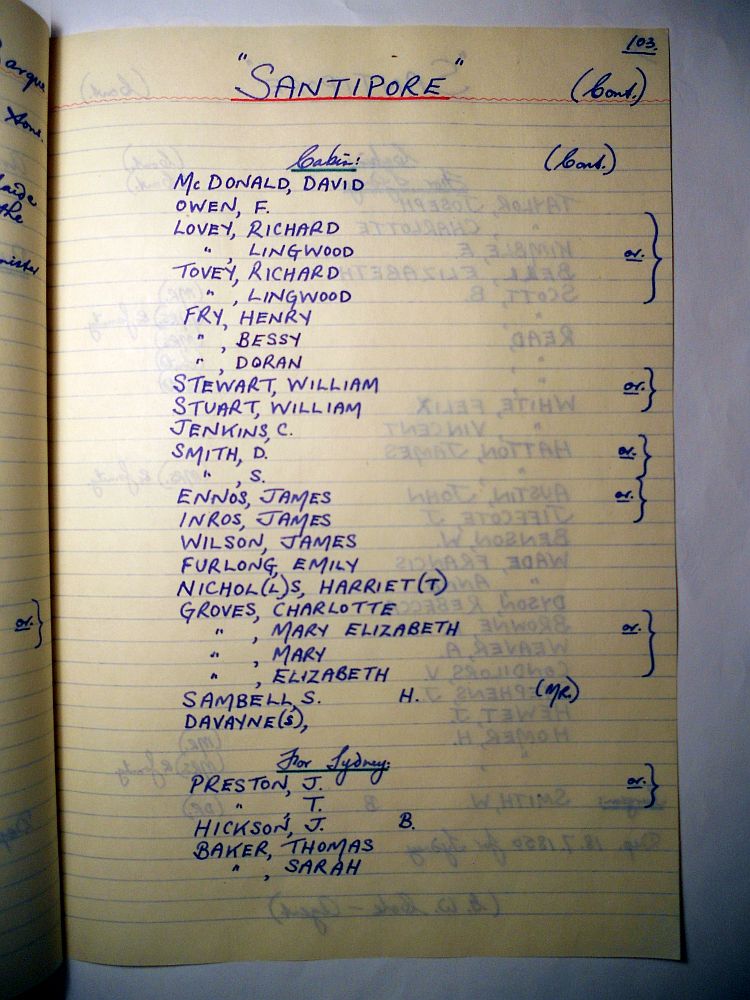 103.
"SANTIPORE" (Cont.)
Cabin: (Cont.)
McDONALD, DAVID
OWEN, F.
LOVEY, RICHARD
" , LINGWOOD or.
TOVEY, RICHARD
" , LINGWOOD
FRY, HENRY
" , BESSY
" , DORAN
STEWART, WILLIAM or.
STUART, WILLIAM
JENKINS, C.
SMITH, D. or.
" , S.
ENNOS, JAMES or.
INROS, JAMES
WILSON, JAMES
FURLONG, EMILY
NICHOL(L)S, HARRIET(T)
GROVES, CHARLOTTE
" , MARY ELIZABETH or.
" , MARY
" , ELIZABETH
SAMBELL, S. H. (MR.)
DAVAYNE(S),
For Sydney:
PRESTON, J. or.
" , T.
HICKSON, J. B.
BAKER, THOMAS
" , SARAH
arque
the
or.